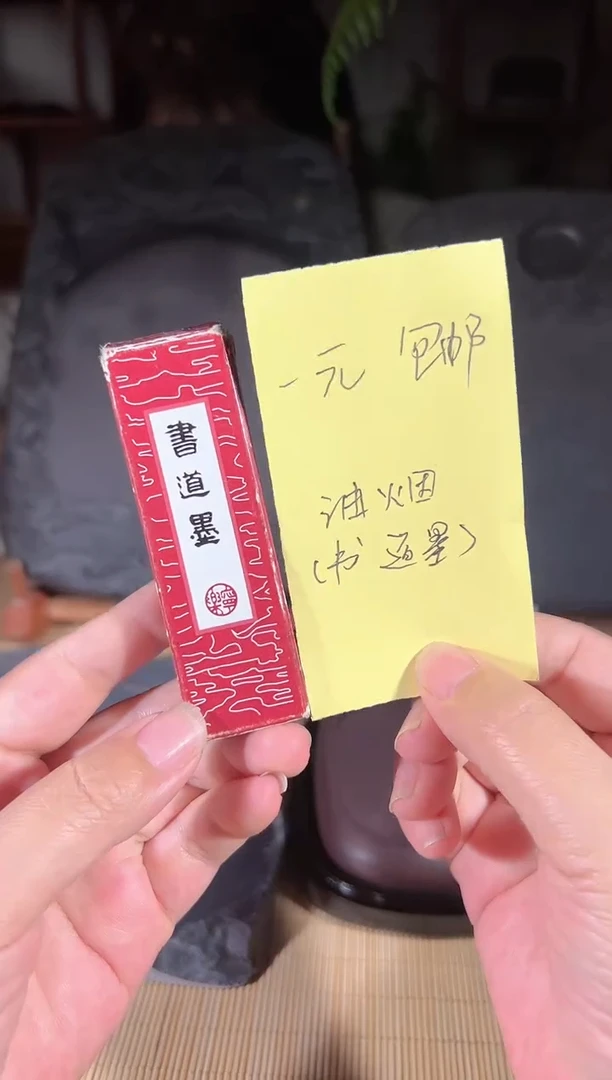 書道墨
一元 包邮
油烟
(书道墨)